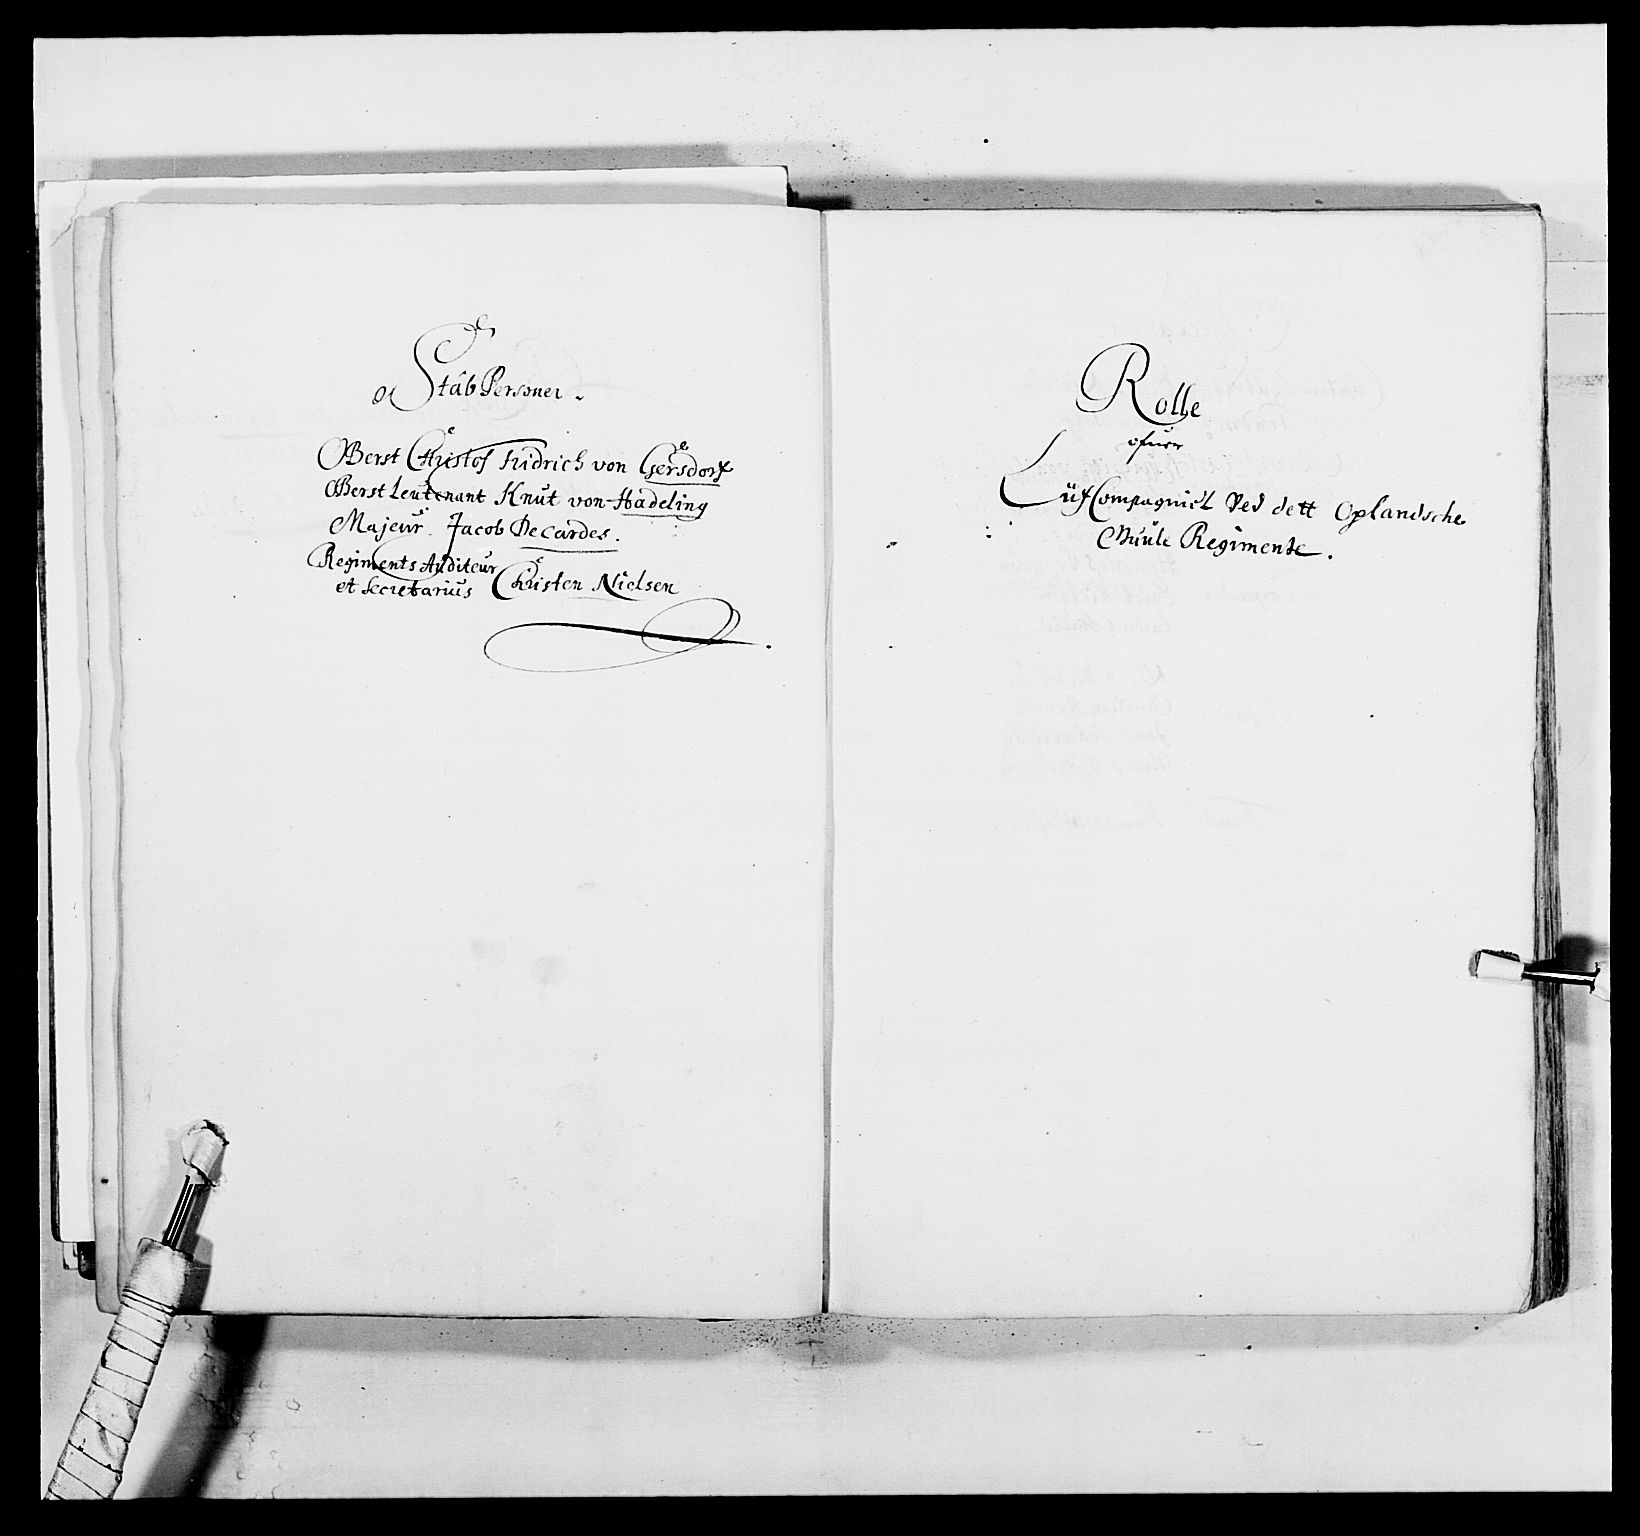 Stab Personer
Oberst Christof Fridrich von Gersdorf
Oberst Leutenant Knut von Hadeling
Majeur Jacob De Cardes.
Regiments Auditeur
et Secretarius Christen Nielsen
Rolle
ofuer
Lüf Compagniet Ved dett Oplandsche
Regimente.